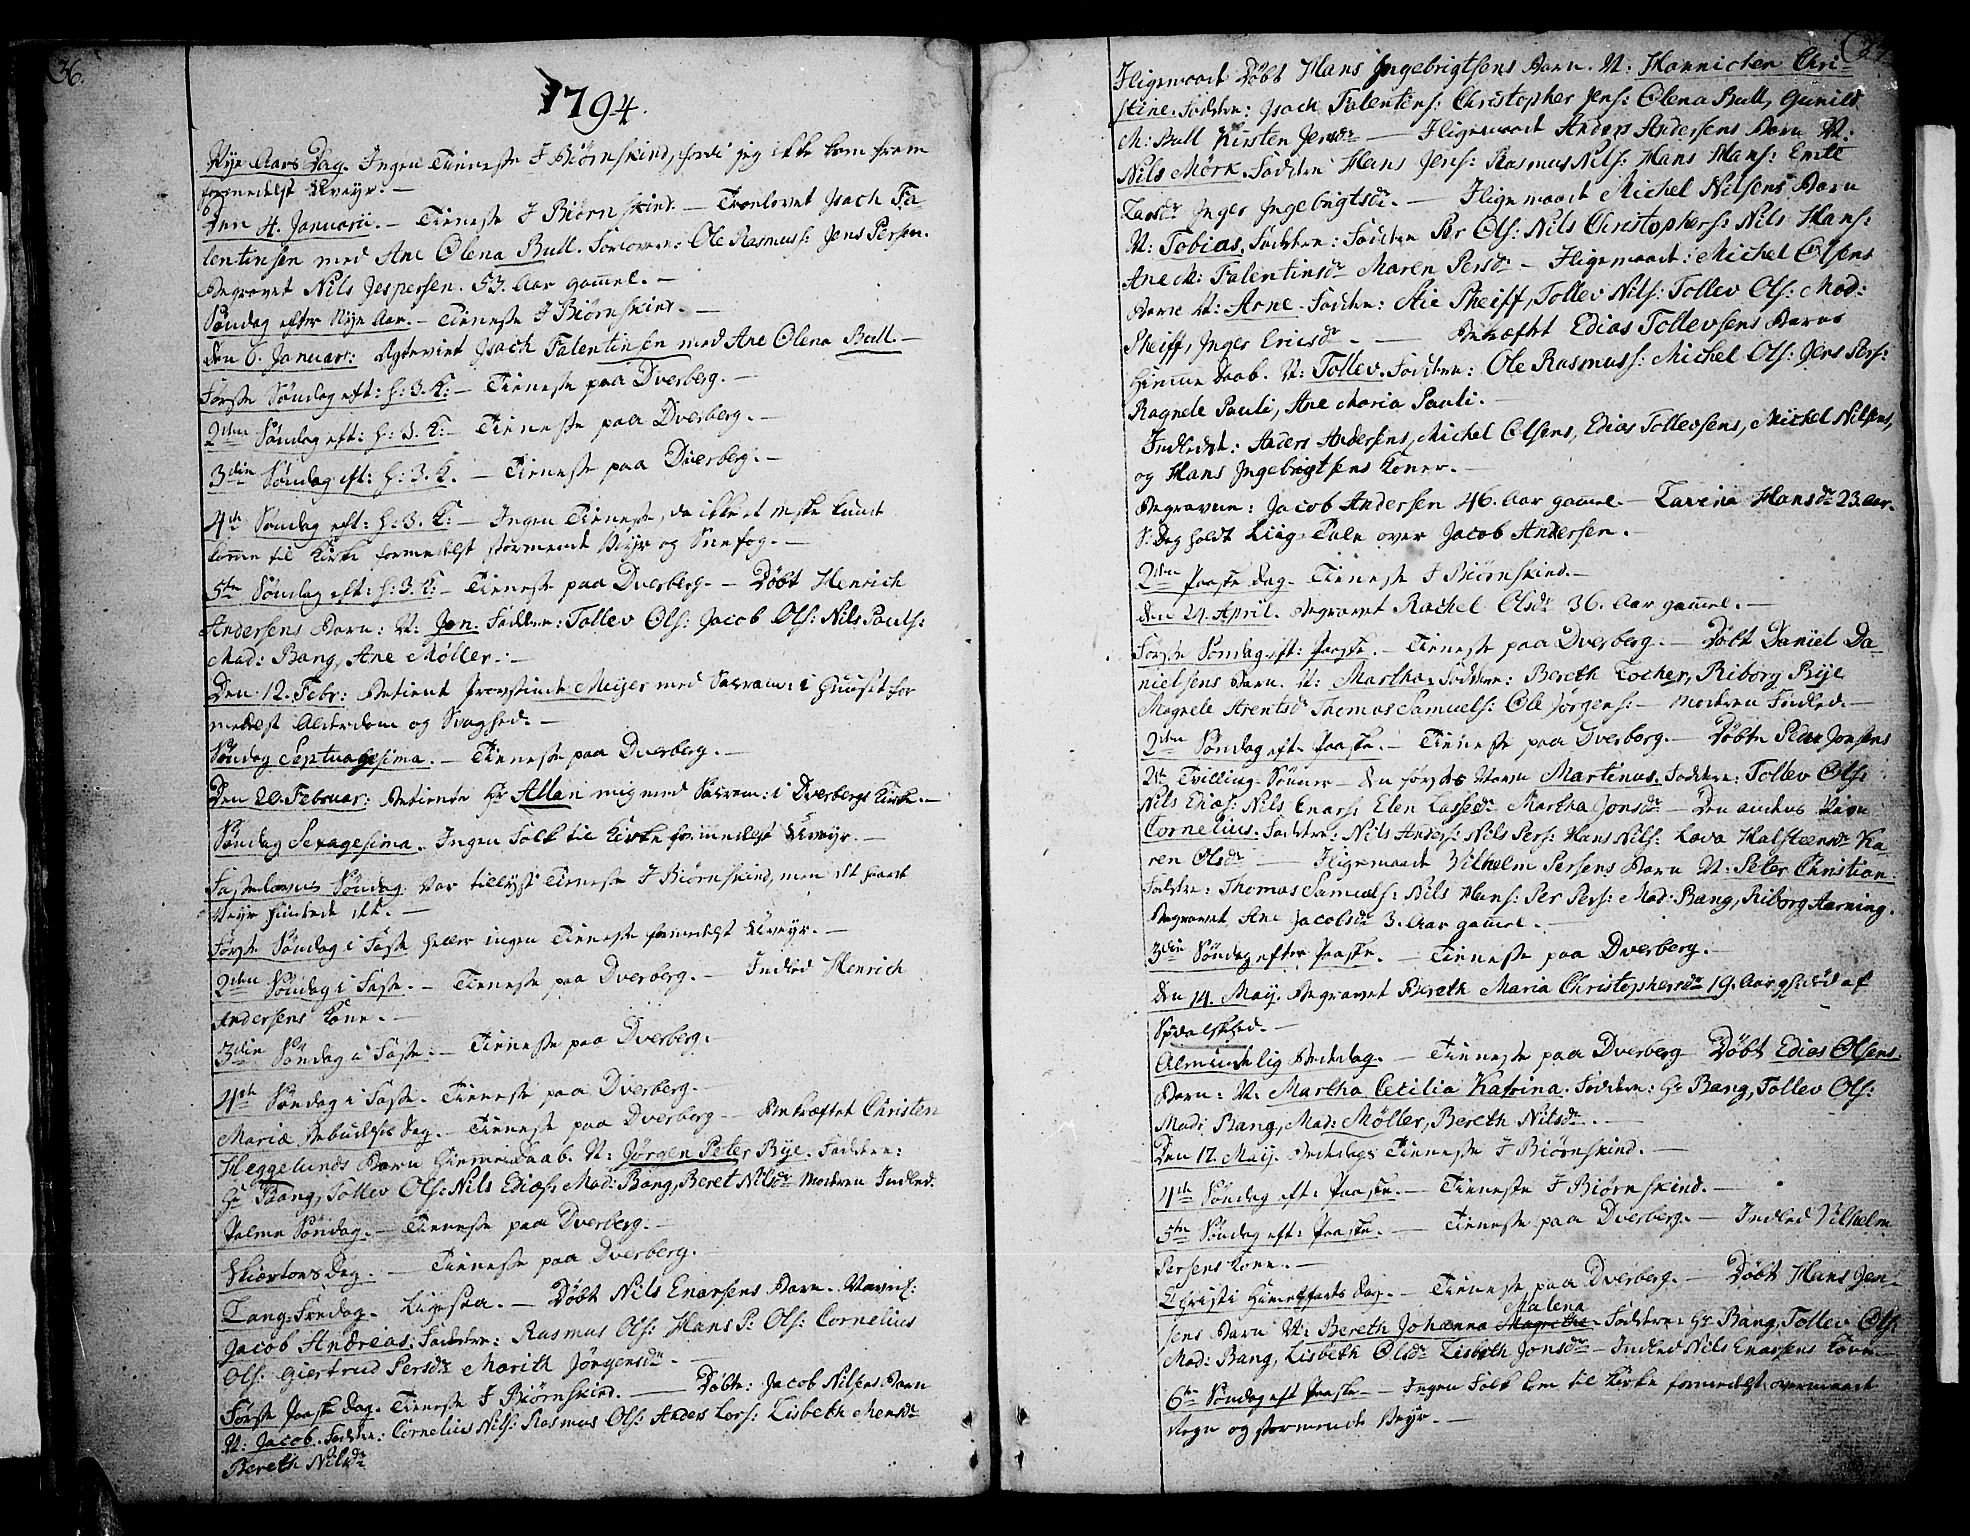 36.
1794.
Nye Aars Dag. Ingen Tieneste I Biørnskind, fordi jeg ikke kom frem
formedelst Uveyr. —
den 4. Januarii. — Tieneste I Biørnskind. — Troelovet Isach Fa-
lentinsen med Ane Olena Bull. Forlovere: Ole Rasmuss: Jens Persen.
Begravet Nils Jespersen. 53. Aar gammel. —
Søndag efter Nye Aar. — Tieneste I Biørnskind. —
den 6. Januar: Egteviet Isach Falentinsen med Ane Olena Bull —
Første Søndag eft: h: 3. K: — Tieneste paa Dverberg. —
2den Søndag eft: h: 3. K: — Tieneste paa Dverberg. —
3die Søndag eft: h: 3. K. — Tieneste paa Dverberg. —
4de Søndag eft: h: 3. K: — Ingen Tieneste, da ikke et Menske kunde
komme til Kirke formedelst stormende Veyr og Snefog. —
5te Søndag eft: h: 3. K: — Tieneste paa Dverberg. — Døbt Henrich
Andersens Barn: N: Jon. Faddere: Tollev Ols: Jacob Ols: Nils Pauls:
Mad: Bang, Ane Møller. —
Den 12. Febr: Betient Provstinde Meyer med Sacram: i Huuset for
medelst Alderdom og Svaghed. —
Søndag Septuagesima. — Tieneste paa Dverberg. —
Den 20. Februar: Betiente Hr Allan mig med Sacram: i Dverbergs Kirke. —
Søndag Sexagesima. Ingen Folk til Kirke formedelst Uveyr. —
Fastelavns Søndag. Var tillyst Tieneste I Biørnskind, men det haarde
Veyr hindrede det. —
Første Søndag i Faste heller ingen Tieneste formedelst Uveyr. —
2den Søndag i Faste. — Tieneste paa Dverberg. — Indled Henrich
Andersens Kone. —
3die Søndag i Faste. — Tieneste paa Dverberg. —
4de Søndag i Faste. Tieneste paa Dverberg. —
Mariæ Bebudelses Dag. — Tieneste paa Dverberg — Bekræftet Christen
Heggelunds Barn Hiemedaab. N: Jørgen Peter Bye. Faddere:
Hr Bang, Tollev Ols: Nils Edias: Mad: Bang, Beret Nilsdr Moderen Indled.
Palme Søndag. — Tieneste paa Dverberg. —
Skiertorsdag. — Tieneste paa Dverberg. —
Lang-Fredag. Ligesaa. — Døbt Nils Enarsens Barn. Navnl:
Jacob Andreas. Faddere: Rasmus Ols: Hans P: Ols: Cornelius
Ols: Giertrud Persdr Marith Jørgensdr. —
Første Paaske Dag. Tieneste I Biørnskind. — Døbte: Jacob Nilsens Barn
N: Jacob. Faddere: Cornelius Nils: Rasmus Ols: Anders Lars: Lisbeth Mensdr
Bereth Nilsdr
Iligemaade Døbt Hans Ingebrigtsens Barn. N: Hannichen Chri-
stine. Faddere: Isach Falentins: Christopher Jens: Olena Bull, Gunild
M: Bull Kirsten Jensdr — Iligemaade Anders Andersens Barn N:
Nils Mörk. Faddere Hans Jens: Rasmus Nils: Hans Hans:
Larsdr Inger Ingebrigtsdr. — Iligemaade Michel Nilsens Barn
N: Tobias. Faddere: Faddere Per Ols: Nils Christophers: Nils Hans:
Ane M: Falentinsdr Maren Persdr — Iligemaade: Michel Olsens
Barn N: Arne. Faddere: Pheiff, Tollev Nils: Tollev Ols: Mad:
Pheiff, Inger Ericsdr. — Bekræftet Edias Tollevsens Barns
Hieme Daab. N: Tollev. Faddere: Ole Rasmuss: Michel Ols: Jens Pers:
Ragnele Pauli, Ane Maria Pauli. —
Indledet: Anders Andersens, Michel Olsens, Edias Tollevsens, Michel Nilsens,
og Hans Ingebrigtsens Koner. —
Begravne: Jacob Andersen 46. Aar gammel — Lavina Hansdr 23. Aar.
S: Dag holdt Liig-Tale over Jacob Andersen.
2den Paaske Dag. Tieneste I Biørnskind. —
den 24. April. Begravet Rachel Olsdr 36. Aar gammel. —
Første Søndag eft: Paaske. — Tieneste paa Dverberg. — Døbt Daniel Da-
nielsens Barn. N: Martha. Faddere: Bereth Locher, Riborg Bye
Magnele Arentsdr Thomas Samuels: Ole Jørgens: — Moderen Indled. —
2den Søndag eft. Paaske. — Tieneste paa Dverberg. — Døbte Peder Jonsens
2de Tvilling-Sønner — den førstes Navn Martinus. Faddere: Tollev Ols:
Nils Edias: Nils Enars: Elen Lassedr Martha Jonsdr — Den andens Navn
Cornelius. Faddere: Nils Anders: Nils Pers: Hans Nils: Lava Halsteensdr Ka-
ren Olsdr — Iligemaade Vilhelm Persens Barn N: Peter Christian.
Faddere: Thomas Samuels: Nils Hans: Per Pers: Mad: Bang, Riborg Aarning.
Begravet Ane Jacobsdr 3. Aar gammel. —
3die Søndag efter Paaske. — Tieneste paa Dverberg.
Den 14. May. Begravet Bereth Maria Christophersdr 19. Aar gl: død af
Spedalskhed. —
Almindelig Bededag. — Tieneste paa Dverberg Døbt Edias Olsens
Barn: N. Martha Cecilia Katrina. Faddere: Hr Bang, Tollev Ols:
Mad: Bang, Mad: Møller, Bereth Nilsdr. —
Den 17. May. Bededags Tieneste I Biørnskind. —
4de Søndag eft: Paaske. — Tieneste I Biørnskind. —
5te Søndag eft: Paaske. — Tieneste paa Dverberg. — Indled Vilhelm
Persens Kone. —
Christi Himelfarts Dag. — Tieneste paa Dverberg. — Døbt Hans Jen-
Malena
sens Barn N: Bereth Johanna Magrethe. Faddere: Hr Bang, Tollev Ols:
Mad: Bang, Lisbeth Olsdr Lisbeth Jonsdr — Indled Nils Enarsens Kone —
6te Søndag eft Paaske — Ingen Folk kom til Kirke formedelst overmaade
Regn og stormende Veyr. —